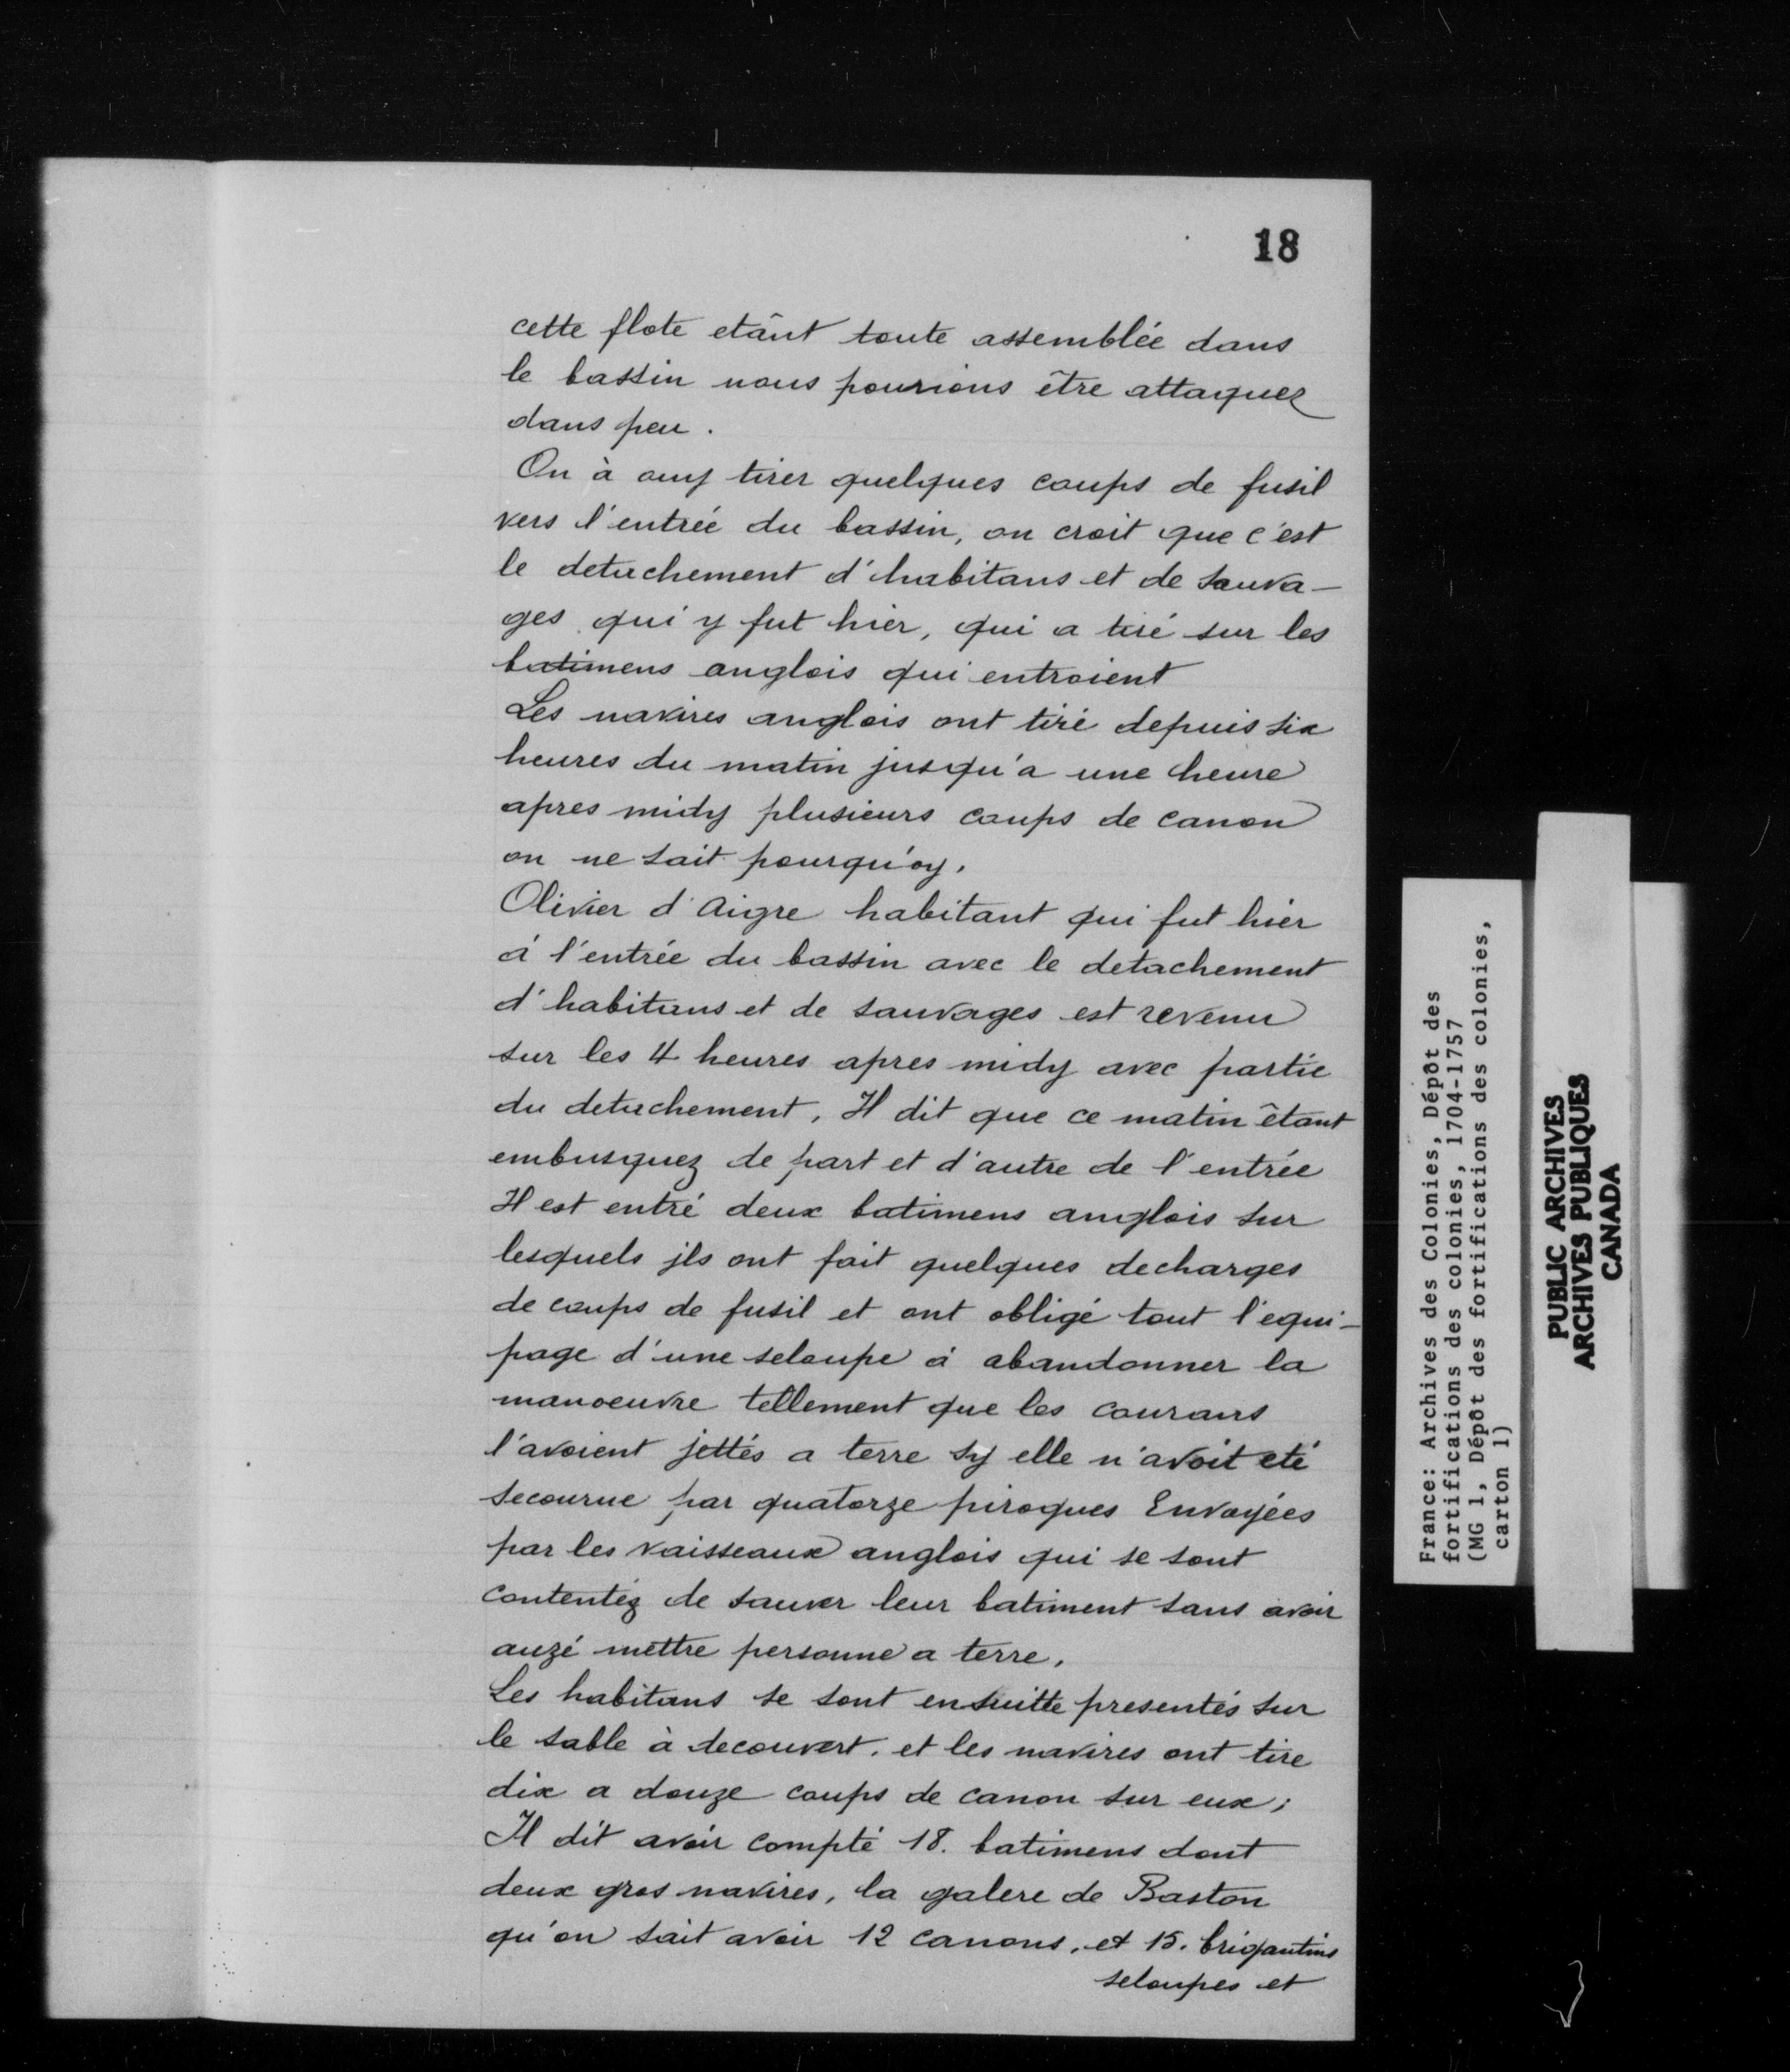 18
cette flote etânt toute assemblée dans
le bassin nous pourions être attaquez
dans peu.
On à ouy tirer quelques coups de fusil
vers l'entrée du bassin, on croit que c'est
le detachement d'habitans et de sauva-
ges qui y fut hier, qui a tiré sur les
batimens anglois qui entroient
Les navires anglois ont tiré depuis six
heures du matin jusqu'a une heure
apres midy plusieurs coups de canon
on ne sait pourqu'oy.
Olivier d'Aigre habitant qui fut hier
à l'entrée du bassin avec le detachement
d'habitans et de sauvages est revenu
sur les 4 heures apres midy avec partie
du detachement. Il dit que ce matin êtant
embusquez de part et d'autre de l'entrée
Il est entré deux batimens anglois sur
lesquels jls ont fait quelques decharges
de coups de fusil et ont obligé tout l'equi-
page d'une seloupe à abandonner la
manoeuvre tellement que les courans
l'avoient jettés a terre sy elle n'avoit eté
secourue par quatorze piroques Envoyées
par les vaisseaux anglois qui se sont
contentéz de sauver leur batiment sans avoir
auzé mettre personne a terre.
Les habitans se sont ensuitte presentés sur
le sable à decouvert. et les navires ont tire
dix a douze coups de canon sur eux;
Il dit avoir compté 18. batimens dont
deux gros navires, la galere de Baston
qu'on sait avoir 12 canons, et 15. brigantins
seloupes et
France: Archives des Colonies, Dépôt des
fortifications des colonies, 1704-1757
(MG 1, Dépôt des fortifications des colonies,
carton 1)
PUBLIC ARCHIVES
ARCHIVES PUBLIQUES
CANADA